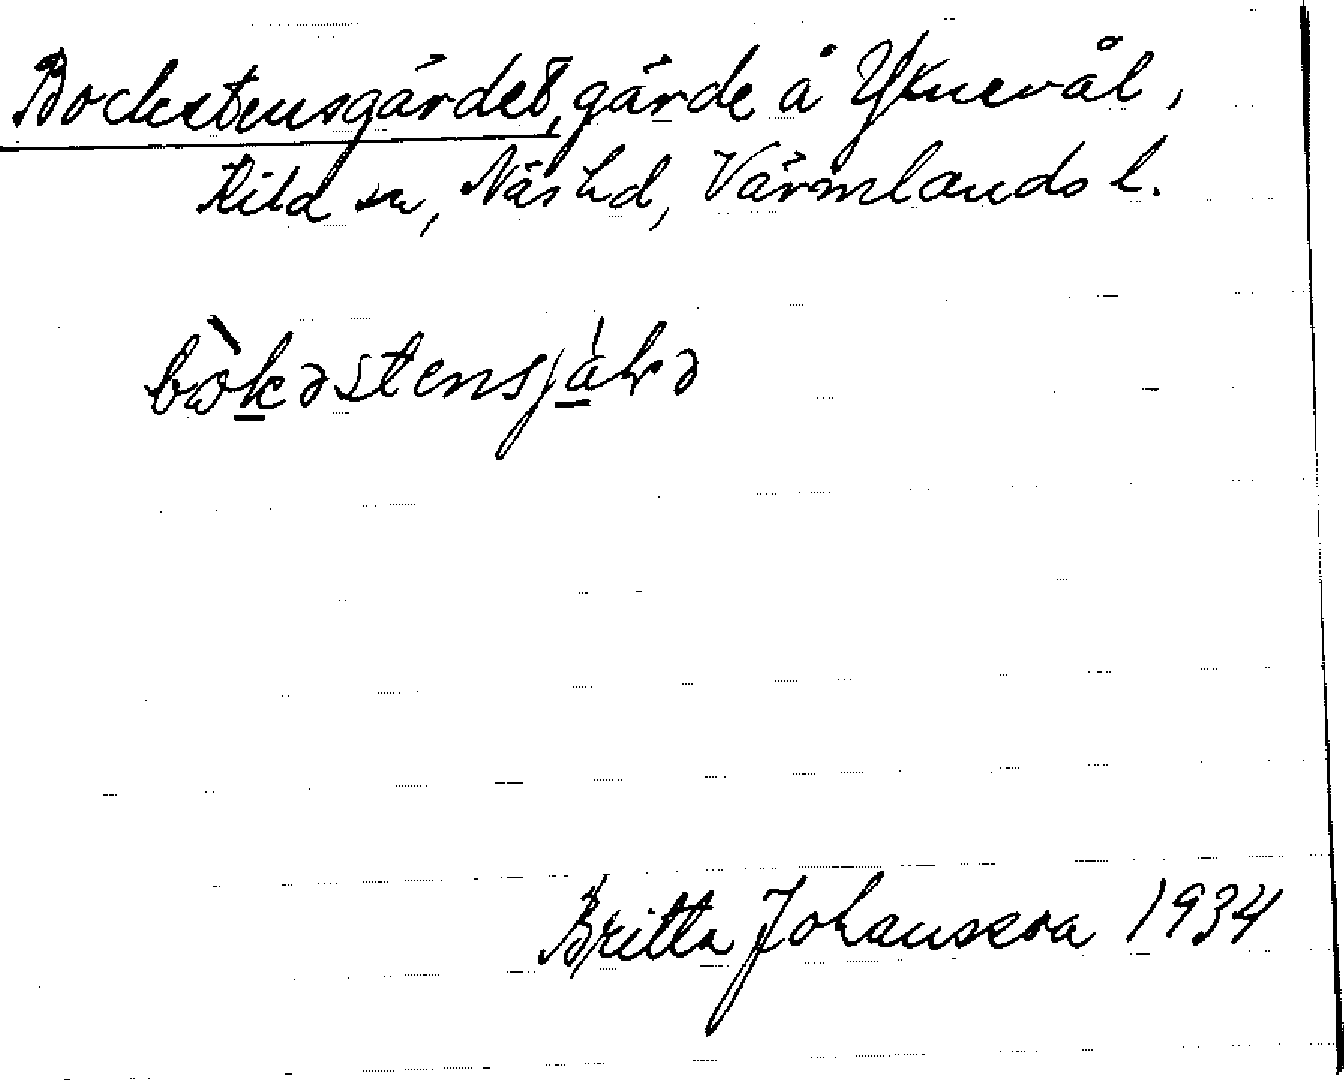 Bockstensgärdet, gärde å Yknevål,
Kila sn, Näs hd, Värmlands l.
bòkəstensjáḷə
Britta Johansson 1934